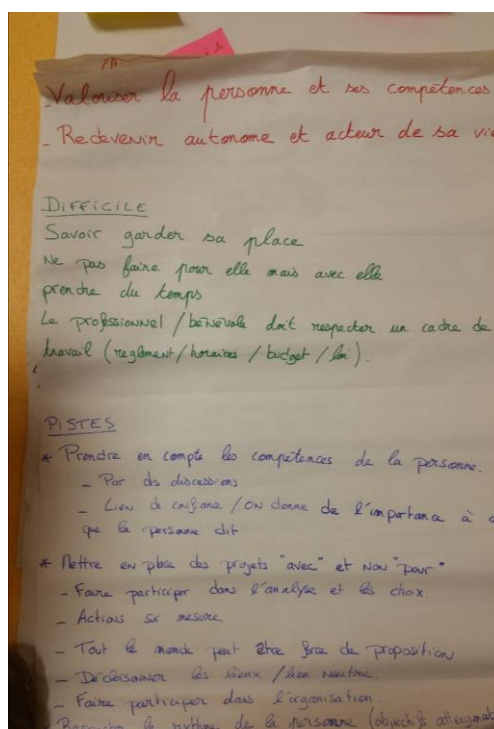 - Valoriser la personne et ses compétences
- Redevenir autonome et acteur de sa vie
DIFFICILE
Savoir garder sa place
Ne pas faire pour elle mais avec elle
prendre du temps
Le professionnel / bénévole doit respecter un cadre de
travail (reglement / horaires / budget / loi).
PISTES
* Prendre en compte les compétences de la personne.
- Par des discussions
- Lien de confiance / On donne de l'importance à
que la personne dit
* Mettre en place des projets "avec" et Non "pour"
- Faire participer dans l'analyse et les choix.
- Actions sur mesure
- Tout le monde peut être force de proposition
- Décloisonner les lieux / lieu neutre.
- Faire participer dans l'organisation.
* le rythme de la personne (objectifs